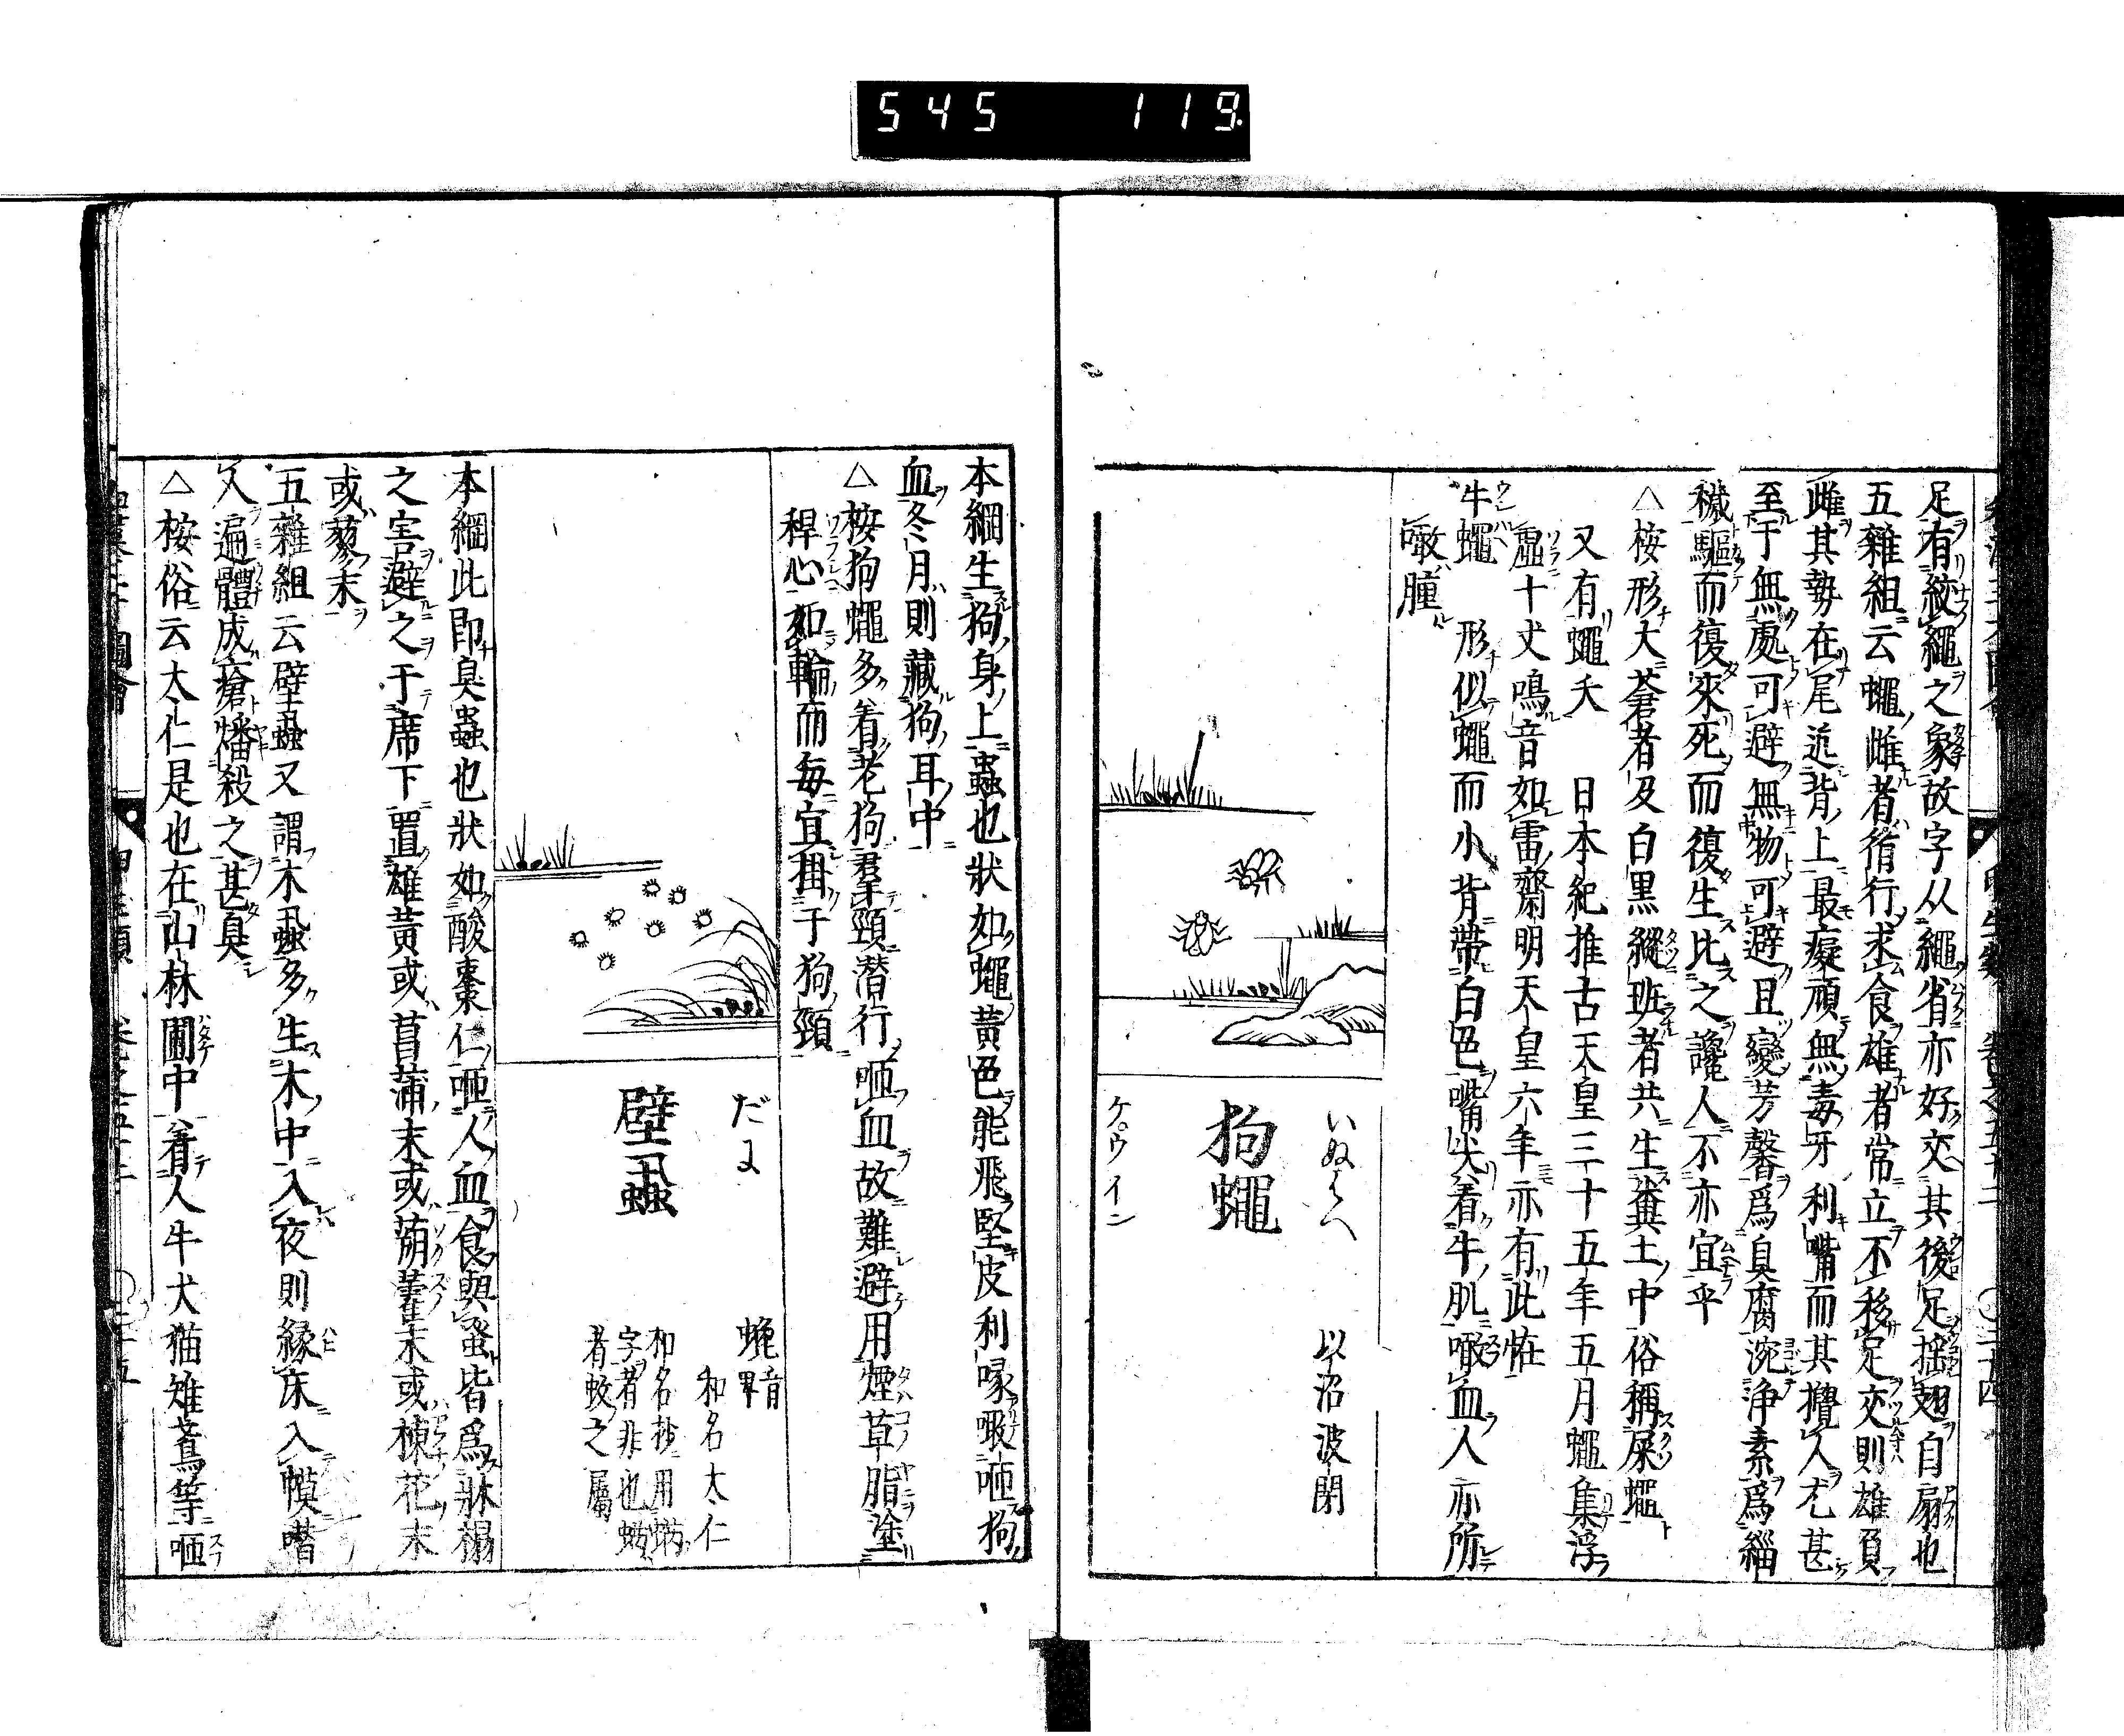 545 119
足有絞繩之象故字从繩省亦好交其後足揺翅自扇也
五雜組云蠅雌者循行求食雄者常立不移足交則雄負
雌其勢在尾近背上最癡頑無毒牙利嘴而其攪人尤甚
至于無處可避無物可避且變芳馨爲臭腐涴浄素爲緇
穢驅而復來死而復生比之讒人不亦宜乎
△桉形大蒼者及白黒縱班者共生糞土中俗稱屎蠅
又有蠅夭 日本紀推古天皇三十五年五月蠅集浮
虛十丈鳴音如雷齋明天皇六年亦有此恠
牛蠅 形似蠅而小背帶白色嘴尖着牛肌噉血人亦所
噉腫
いぬはへ
狗蠅
以沼波閉
ケ゚ウイン
本綱生狗身上蟲也狀如蠅黃色能飛堅皮利喙噉咂狗
血冬月則藏狗耳中
△桉狗蠅多着老狗羣頸潜行咂血故難避用煙草脂塗
稈心如輪而毎宜掛于狗頸
だに
壁蝨
蜱音
和名太仁
和名抄用
字者非也
者蚊之屬
本綱此即臭蟲也狀如酸棗仁咂人血食與蚤皆爲牀榻
之害避之于席下置雄黃或菖蒲末或蒴藋末或楝花末
或蓼末
五雜組云壁蝨又謂木蝨多生木中入夜則縁床入幙噆
人遍體成瘡燔殺之甚臭
△桉俗云太仁是也在山林圃中着人牛犬猫雉鳶等咂